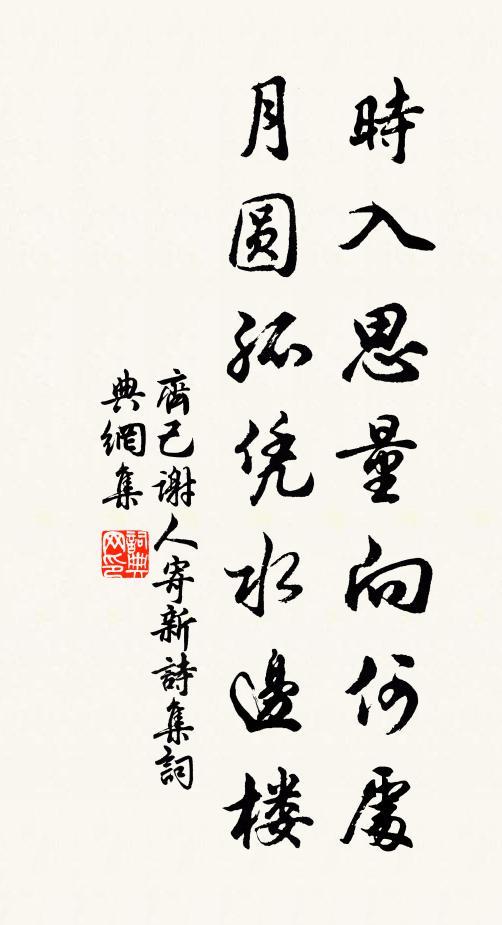 時入思量向何處
月圓孤凭水邊楼
齊己谢人寄新詩集詞
典網集
詞典网印